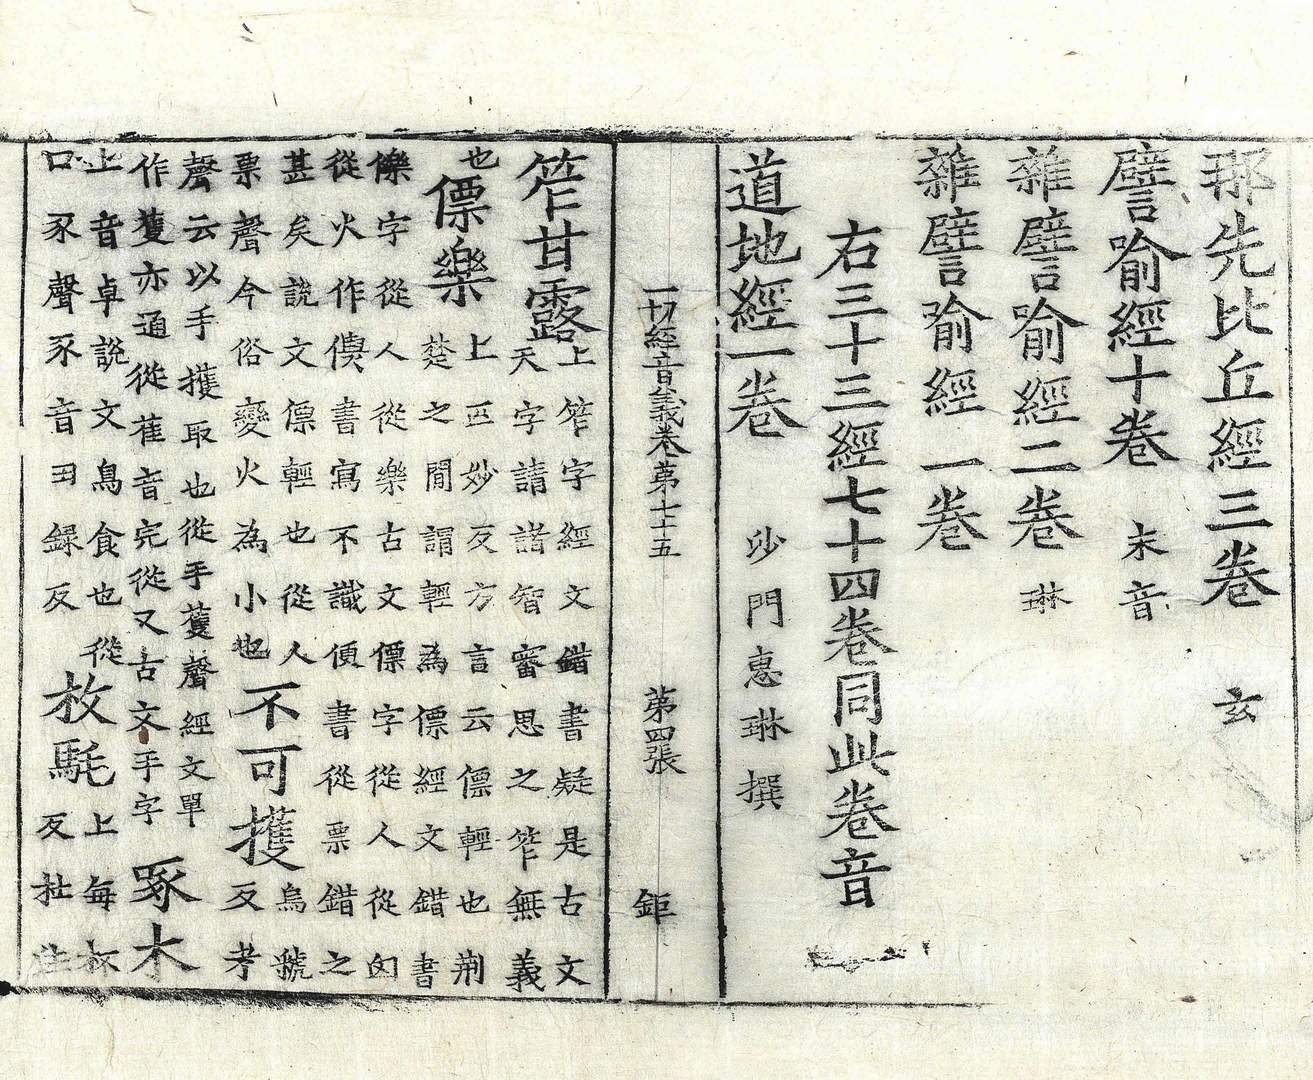 那先比丘經三卷 玄
譬喻經十卷 未音
雜譬喻經二卷 琳
雜譬喻經一卷
右三十三經七十四卷同此卷音
道地經一卷 沙門惠琳撰
一切經音義卷第七十五 第四張 鉅
笮甘露 上笮字經文錯書疑是古文
天字請諸智審思之笮無義
也
僄樂 上匹妙反方言云僄輕也荆
楚之間謂輕為僄經文錯書
字從人從樂古文僄字從人從囟
從火作僄書寫不識便書從票錯之
甚矣說文僄輕也從人
票聲今俗變火為小也
不可擭 烏號
反考
聲云以手擭取也從手蒦聲經文單
作蒦亦通從萑音完從又古文手字
啄木
上音卓說文鳥食也從
口豖聲豖音丑錄反
枚 上每杯
反杜注